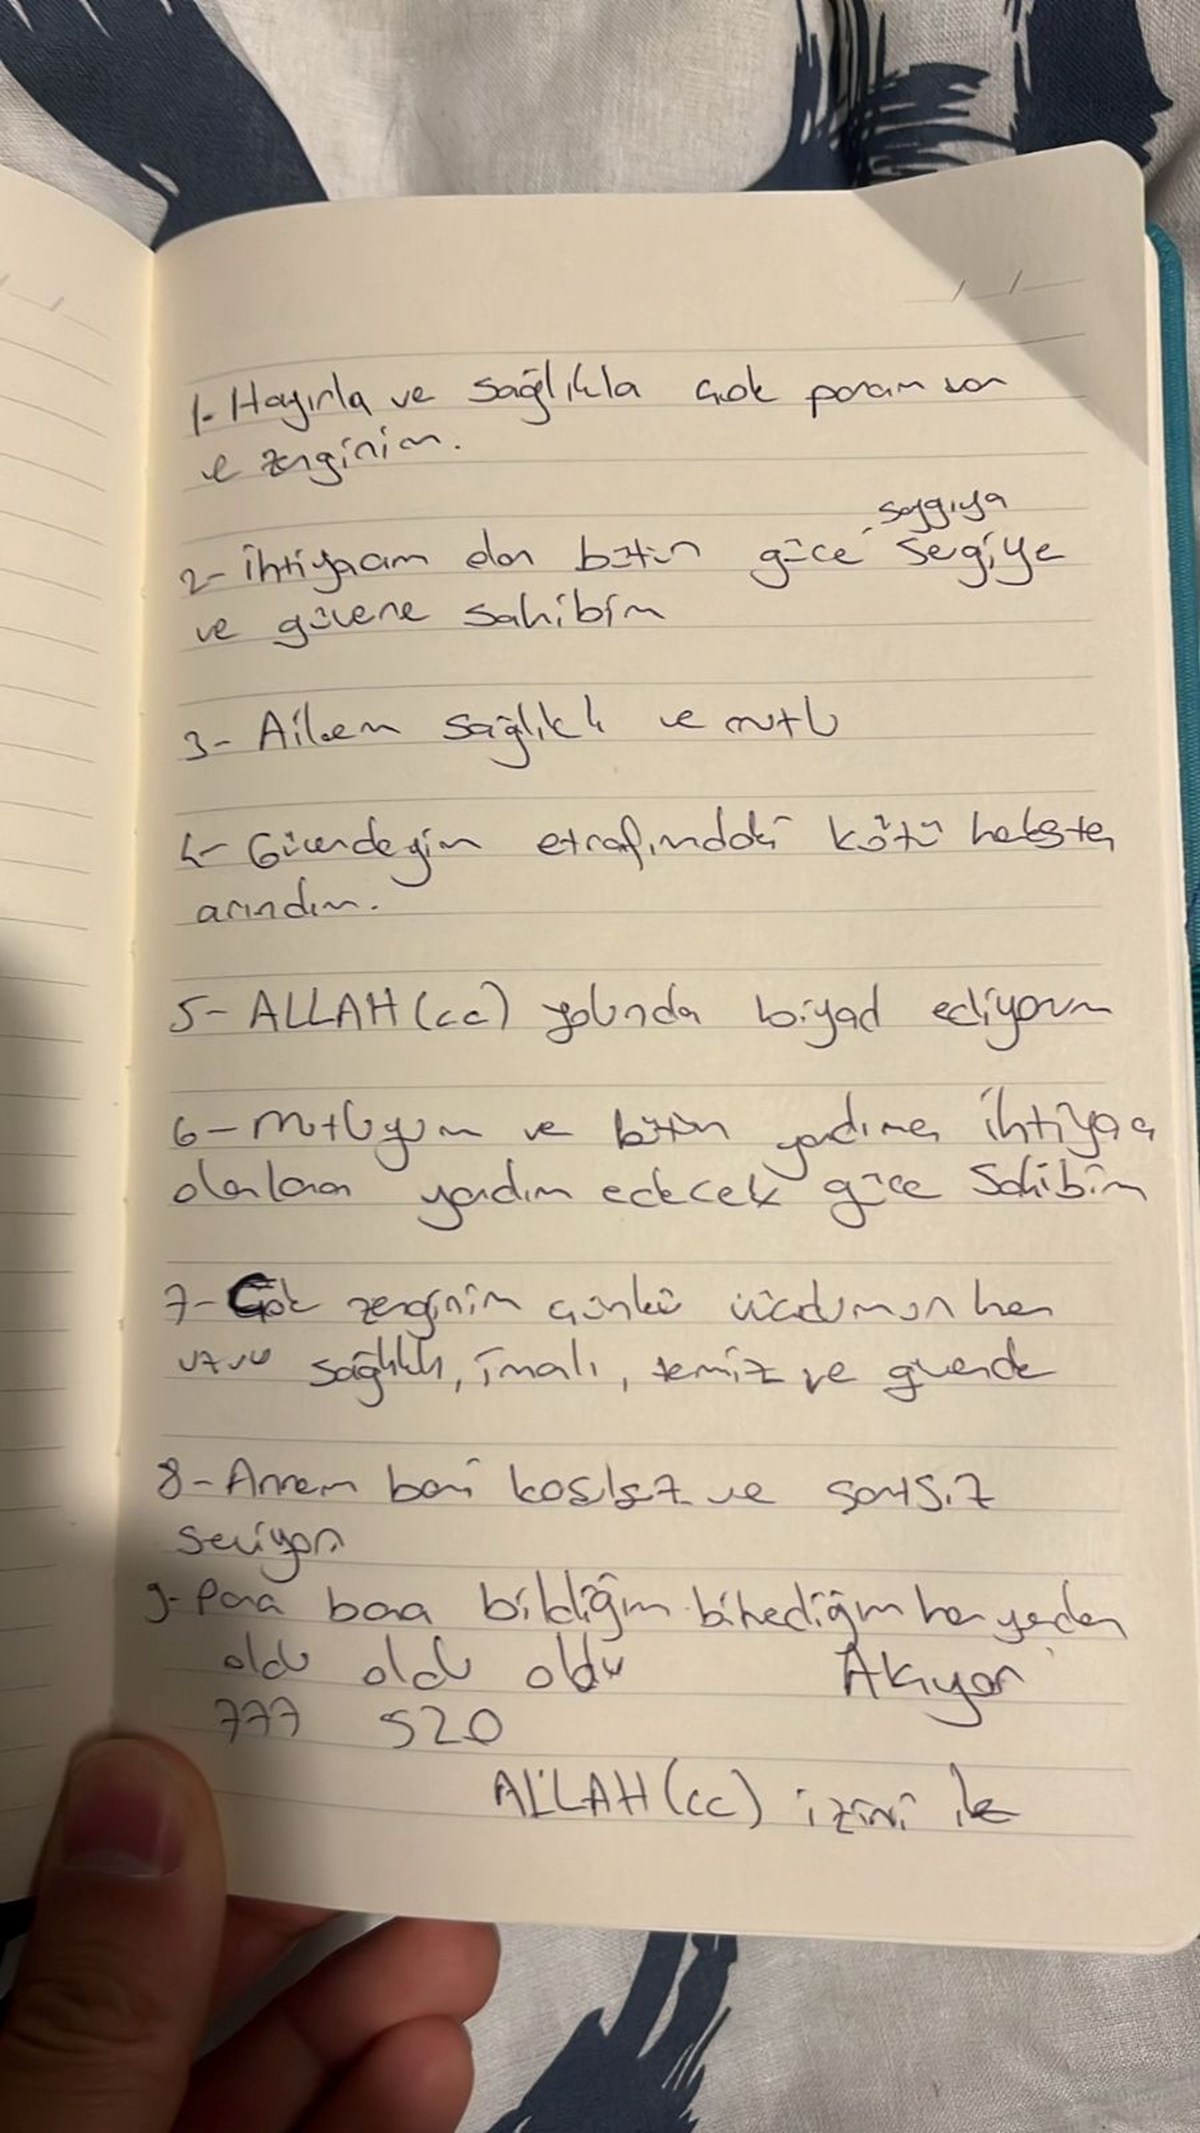 1- Hayırla ve sağlıkla çok param var
ve zenginim.
saygıya
2- İhtiyacım olan bütün güce, segiye
ve güvene sahibim
3- Ailem sağlıklı ve mutlu
4- Güvendeyim etrafımdaki kötü herkesten
arındım.
5- ALLAH (cc) yolunda biyad ediyorum
6- Mutluyum ve bütün yardıma ihtiyacı
olanlara yardım edecek güce sahibim
7- Çok zenginim çünkü vücudumun her
uzvu sağlıklı, imalı, temiz ve güvende
8- Annem beni koşulsuz ve şartsız
seviyor
9- Para bana bildiğim bilmediğim her yerden
oldu oldu oldu Akıyor
777 520
ALLAH (cc) izini ile